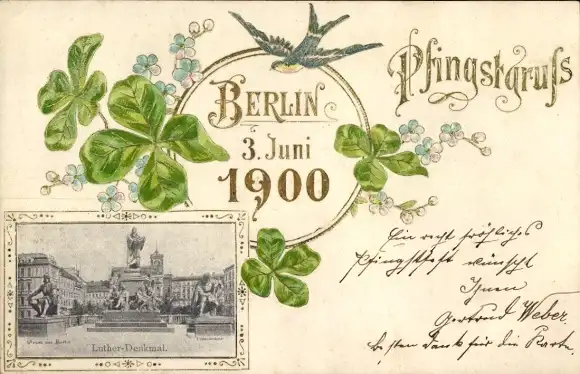 Pfingstgruß
BERLIN
3. Juni
1900
Ein recht fröhliches
Pfingstfest wünscht
Ihnen
Gertrud Weber.
Besten Dank für die Karte.
Luther-Denkmal.